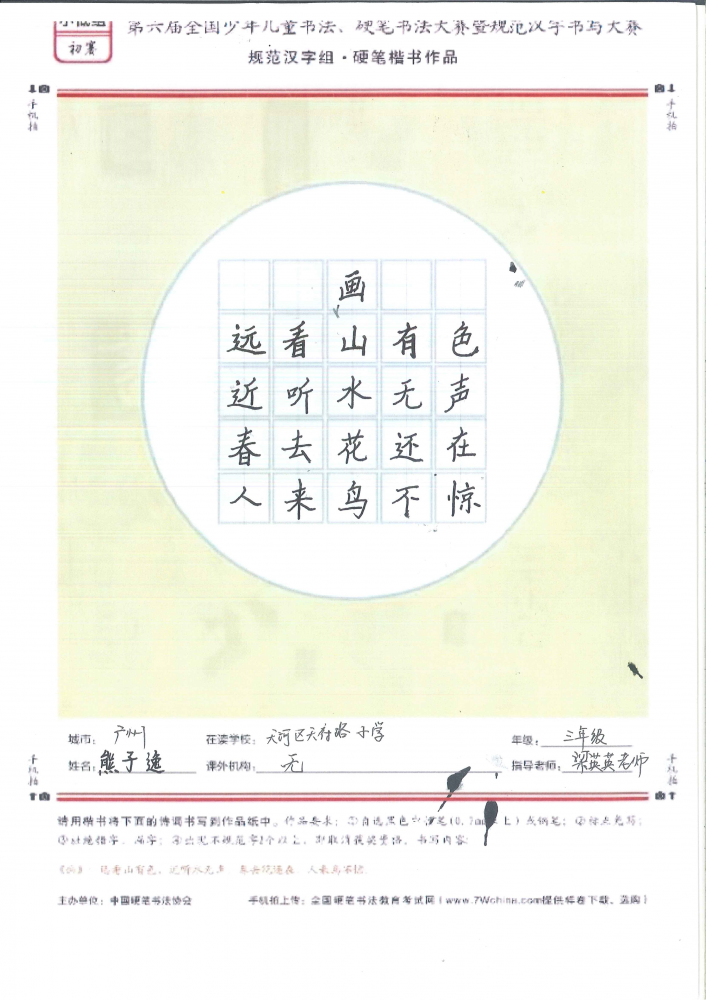 小低组
初赛
第六届全国少年儿童书法、硬笔书法大赛暨规范汉字书写大赛
规范汉字组·硬笔楷书作品
手机拍
手机拍
画
远看山有色
近听水无声
春去花还在
人来鸟不惊
城市：广州 在读学校：天河区天府路小学 年级：三年级
姓名：熊子逸 课外机构：无 指导老师：梁英英老师
手机拍
手机拍
请用楷书将下面的诗词书写到作品纸中。作品要求：①自选黑色中性笔(0.7mm以上)或钢笔；②标点免写；
③杜绝错字、漏字；④出现不规范字1个以上，即取消获奖资格。书写内容：
《画》 远看山有色，近听水无声 春去花还在 人来鸟不惊
主办单位：中国硬笔书法协会 手机拍上传：全国硬笔书法教育考试网（www.7Wchina.com提供样卷下载、选购）